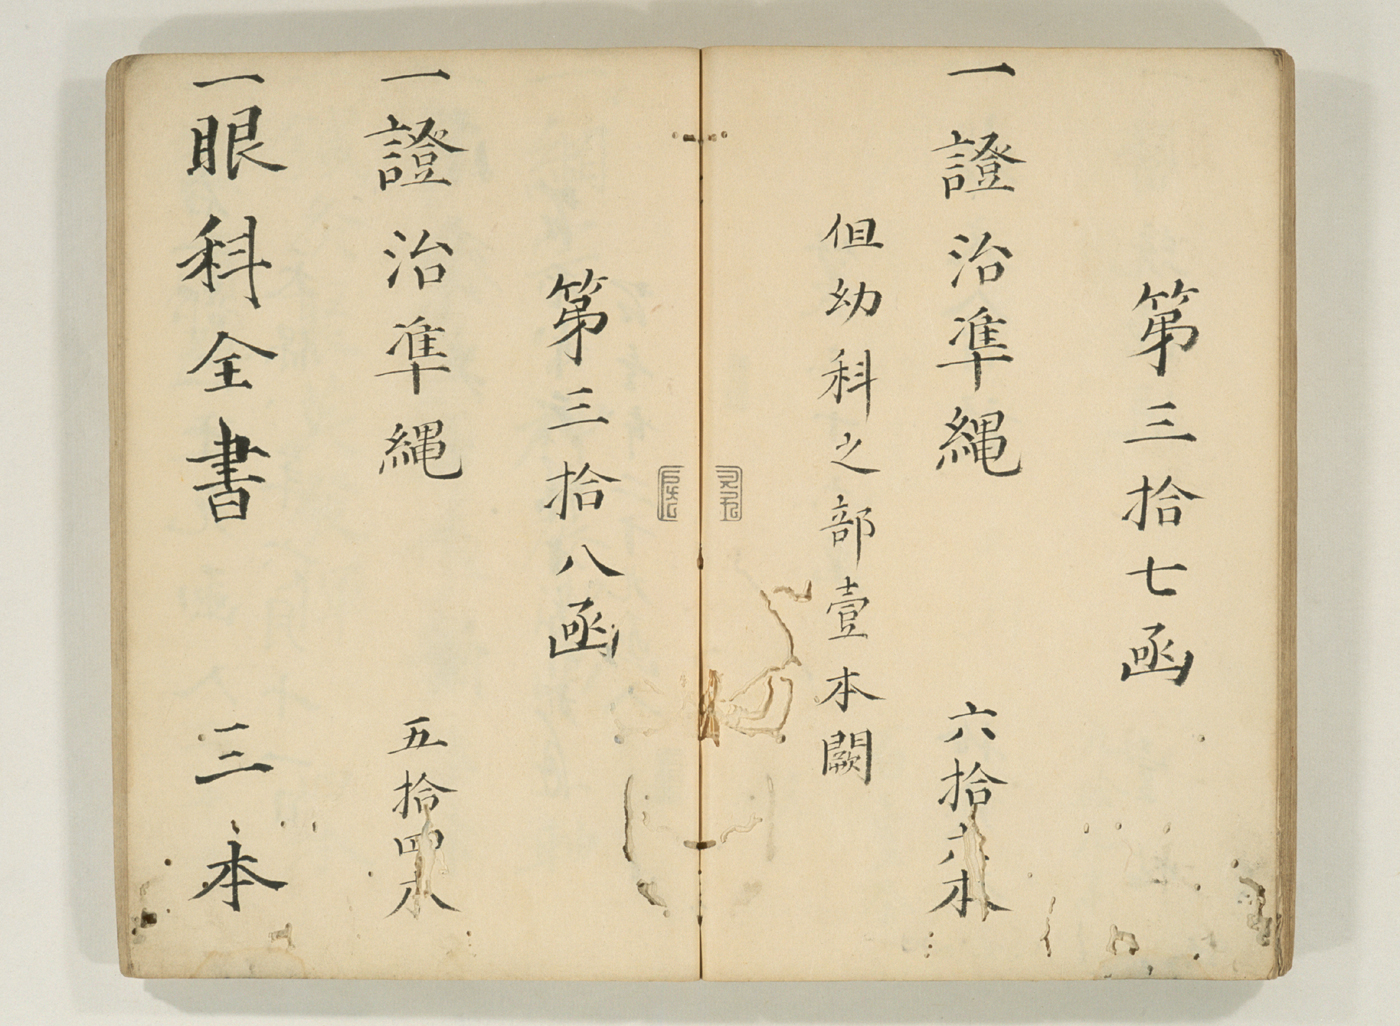 第三拾七函
一證治準縄
六拾六本
但幼科之部壹本闕
第三拾八函
一證治準縄
五拾四本
一眼科全書
三本